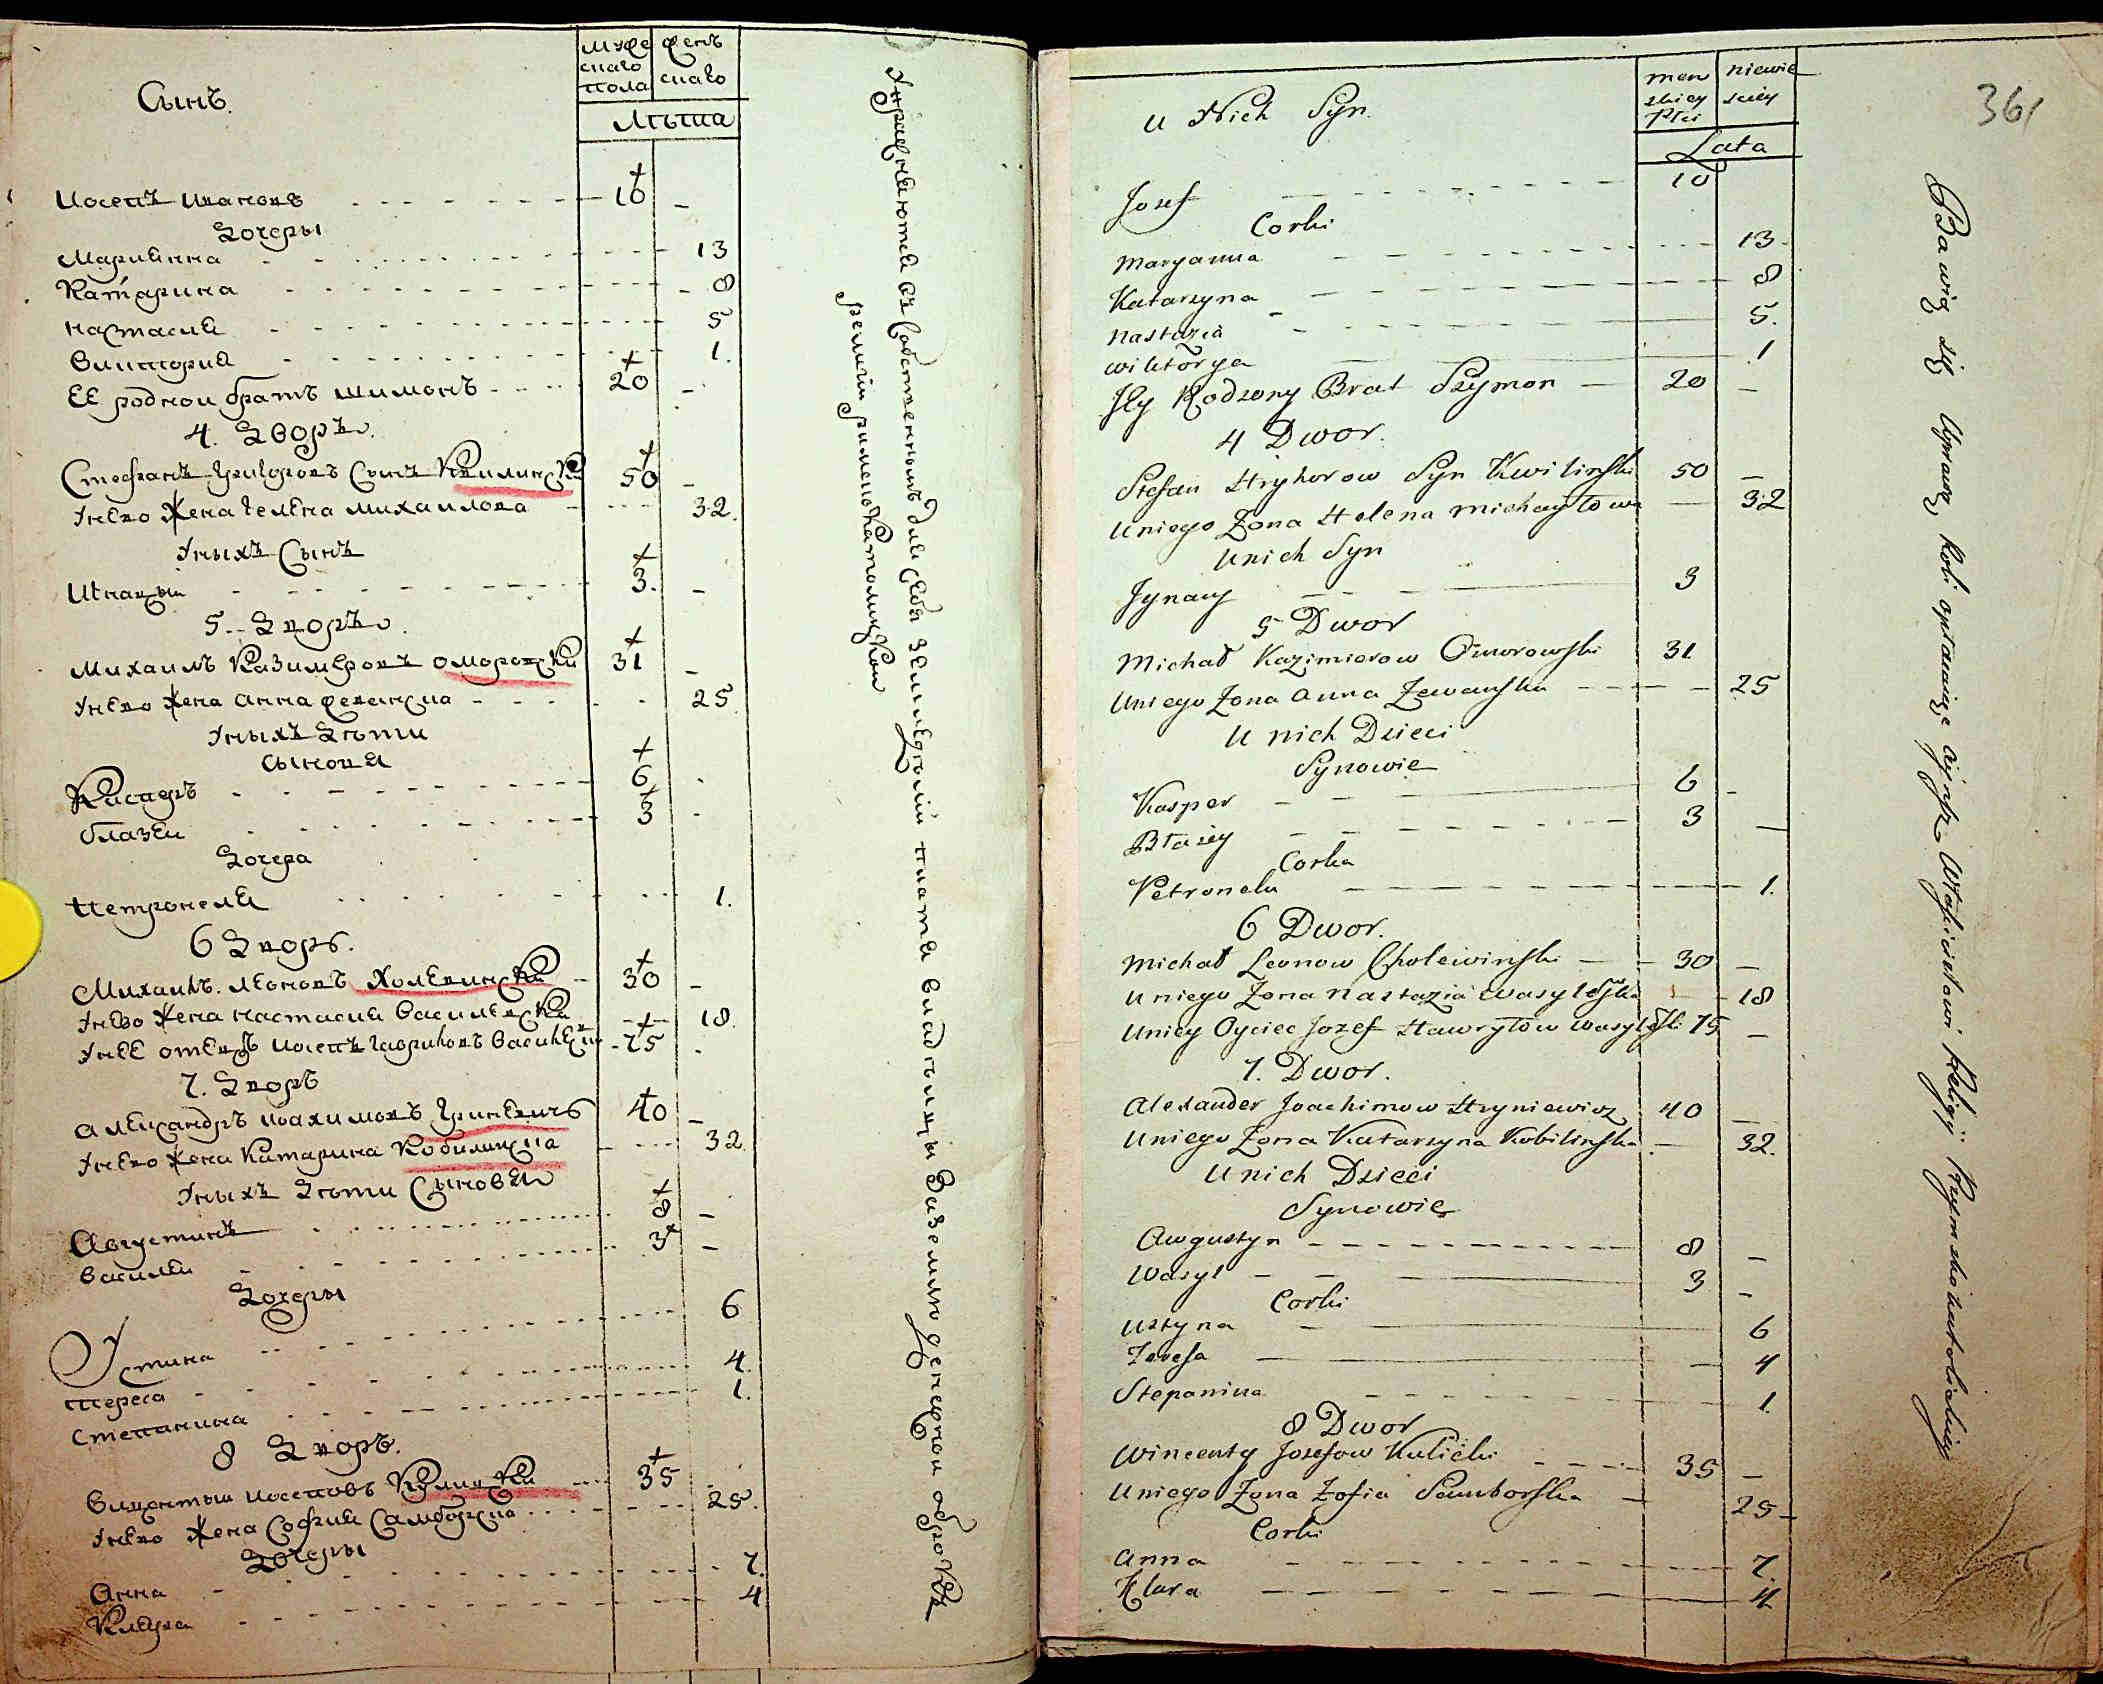 Сынъ.
муже
скаго
пола
жень
скаго
Лѣта
Иосепъ Ивановъ 10 -
Дочеры
Марианна 13
Катарина 8
Настасия 5
Виктория 1.
ЕЕ родной братъ шимонъ 20 -
4. Дворъ.
Стефанъ Григоровъ Сынъ Квилинский 50 -
Унево Жена Гелена Михаилова 32.
Уныхъ Сынъ
Игнацый 3. -
5. Дворъ.
Михаилъ Казимеровъ Оморовский 31 -
Унево Жена Анна 25
Уныхъ Дѣти
Сыновя
Каспаръ 6
Блазей 3
Дочера
Петронеля 1.
6 Дворъ.
Михаилъ Леоновъ Холевинский 30 -
Унево Жена Настасия Василевска 18.
Унее отецъ Иосепъ Гавриловъ 75
7. Дворъ
Александръ Иоахимовъ Гриневичъ 40 -
Унево Жена Катарина Кобилинска 32.
Уныхъ Дѣти Сыновя
Августинъ 8 -
Василий 3 -
Дочеры
Устина 6
Тереса 4.
Степанина 1.
8 Дворъ.
Винцентый Иосеповъ Кулицкий 35
Унево Жена София Самборска 25.
Дочеры
Анна 7.
Кляра 4
Упражняются въ собственномъ для себя земледѣлии плотя владѣлицы Заземлю денежной оброкъ
религии римско Католицкой
361
u Nich Syn.
men
skiey
Płci
niewie
sciey
Lata
Jozef 10
Corki
Maryanna 13
Katarzyna 8
Nastazia 5.
Wiktorya 1
Jey Rodzony Brat Szymon 20 -
4 Dwor.
Stefan Hryhorow Syn Kwilinski 50 -
Uniego Zona Helena Michayłowa 32
Unich Syn
Jgnacy 3
5 Dwor
Michał Kazimierow Omorowski 31
Uniego Zona Anna 25
U nich Dzieci
Synowie
Kasper 6 -
Błazey 3 -
Corka
Petronela 1.
6 Dwor.
Michał Leonow Cholewinski 30 -
Uniego Zona Nastazia Wasylewska 18
Uniey Oyciec Jozef Hawryłow 75 -
7. Dwor.
Alexander Joachimow Hryniewicz 40 -
Uniego Zona Katarzyna Kobilinska 32.
Unich Dzieci
Synowie
Awgustyn 8 -
Wasyl 3 -
Corki
Ustyna 6
Teresa 4
Stepanina 1.
8 Dwor
Wincenty Josefow Kulicki 35 -
Uniego Zona Zofia Samborska 25
Corki
Anna 7.
Klara 4
Bawią się Uprawą Roli opłacaiąc czynsz Włascicielowi Religij Rzymskokatolickiey